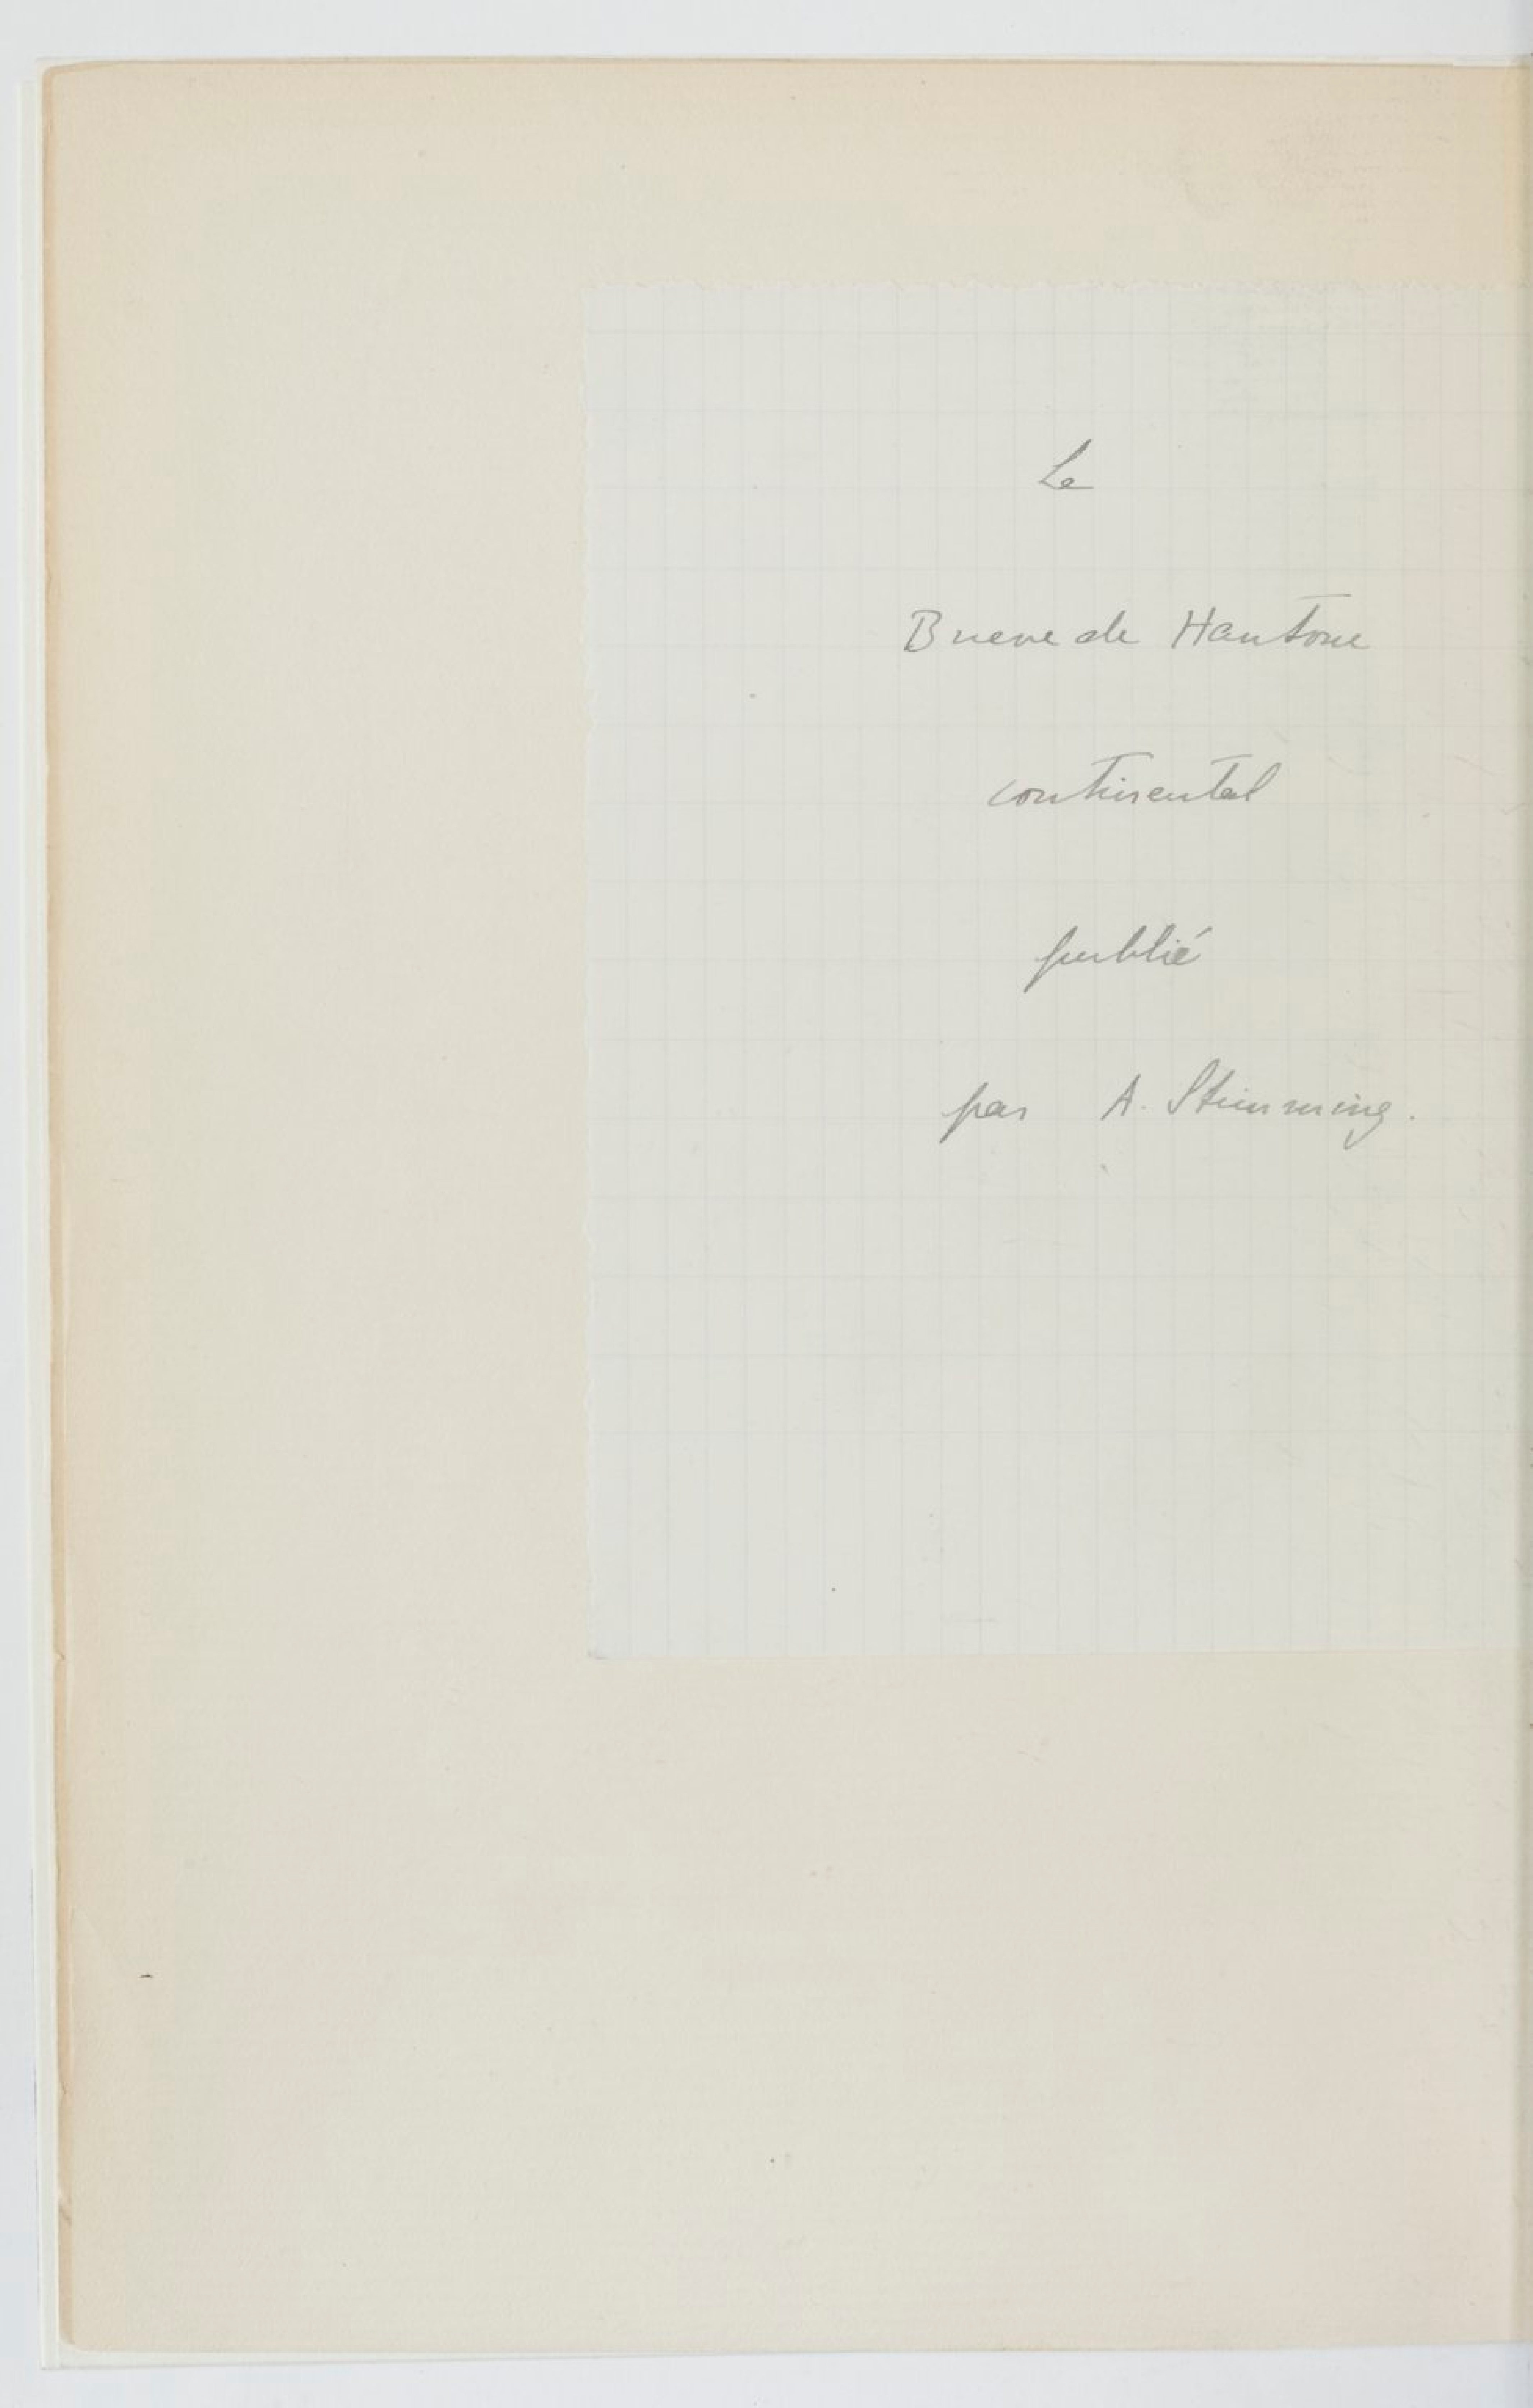 Le
Bueve de Hantone
continental
publié
par A. Stimming.